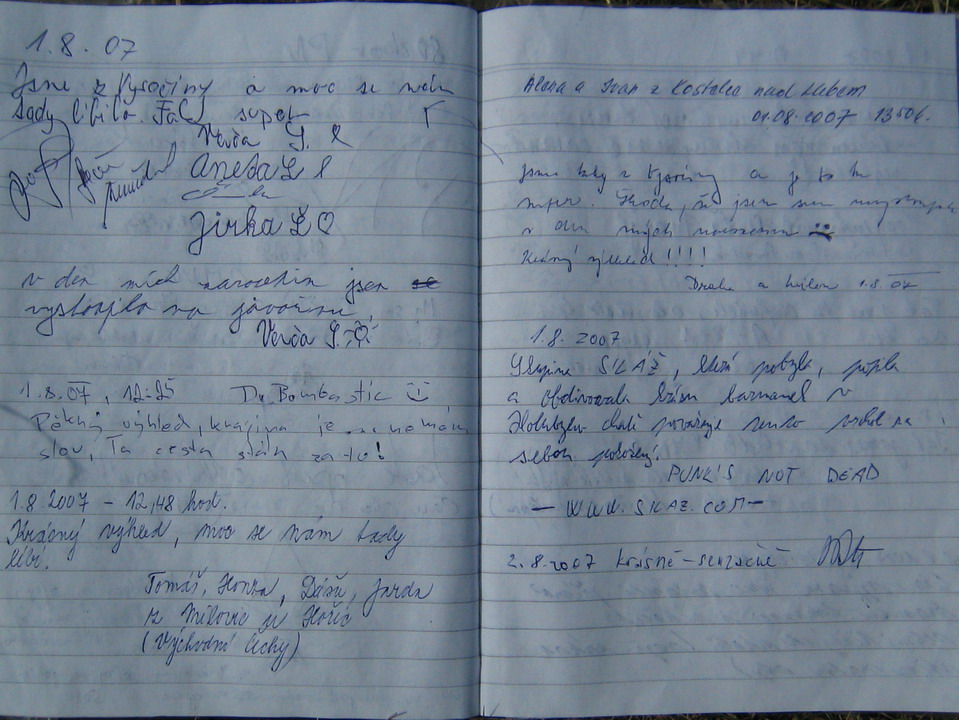 1.8.07
Jsme z Vysočiny a moc se nám
tady líbilo. Fakt super
Verča Š.
Aneta Š
Jirka Š ♡
v den mích narozenin jsem
vystoupila na javořici
Verča Š.
1.8.07, 12:25 Dr. Bombastic
Pěkný výhled, krajina je... nemám
slov, Ta cesta stála za to!
1.8.2007 - 12,48 hod.
Krásný výhled, moc se nám tady
líbí.
Tomáš, Honza, Dáša, Jarda
z Milovic u Hořic
(Východní Čechy)
Alena a Ivan z Kostelce nad Labem
01.08.2007 1350h.
Jsme taky z Vysočiny a je to tu
super. Škoda, že jsem sem
v den mých narozenin
Krásný výhled!!!!
a 1.8. 07
1.8.2007
Skupina SKÁŽ, která pobyla, popila
a obdivovala krásu barmanek v
Holubově chatě považuje tento vrchol za
sebou pokořený.
PUNK'S NOT DEAD
- WWW.SKAZ.COM -
2.8.2007 krásně - senzačně